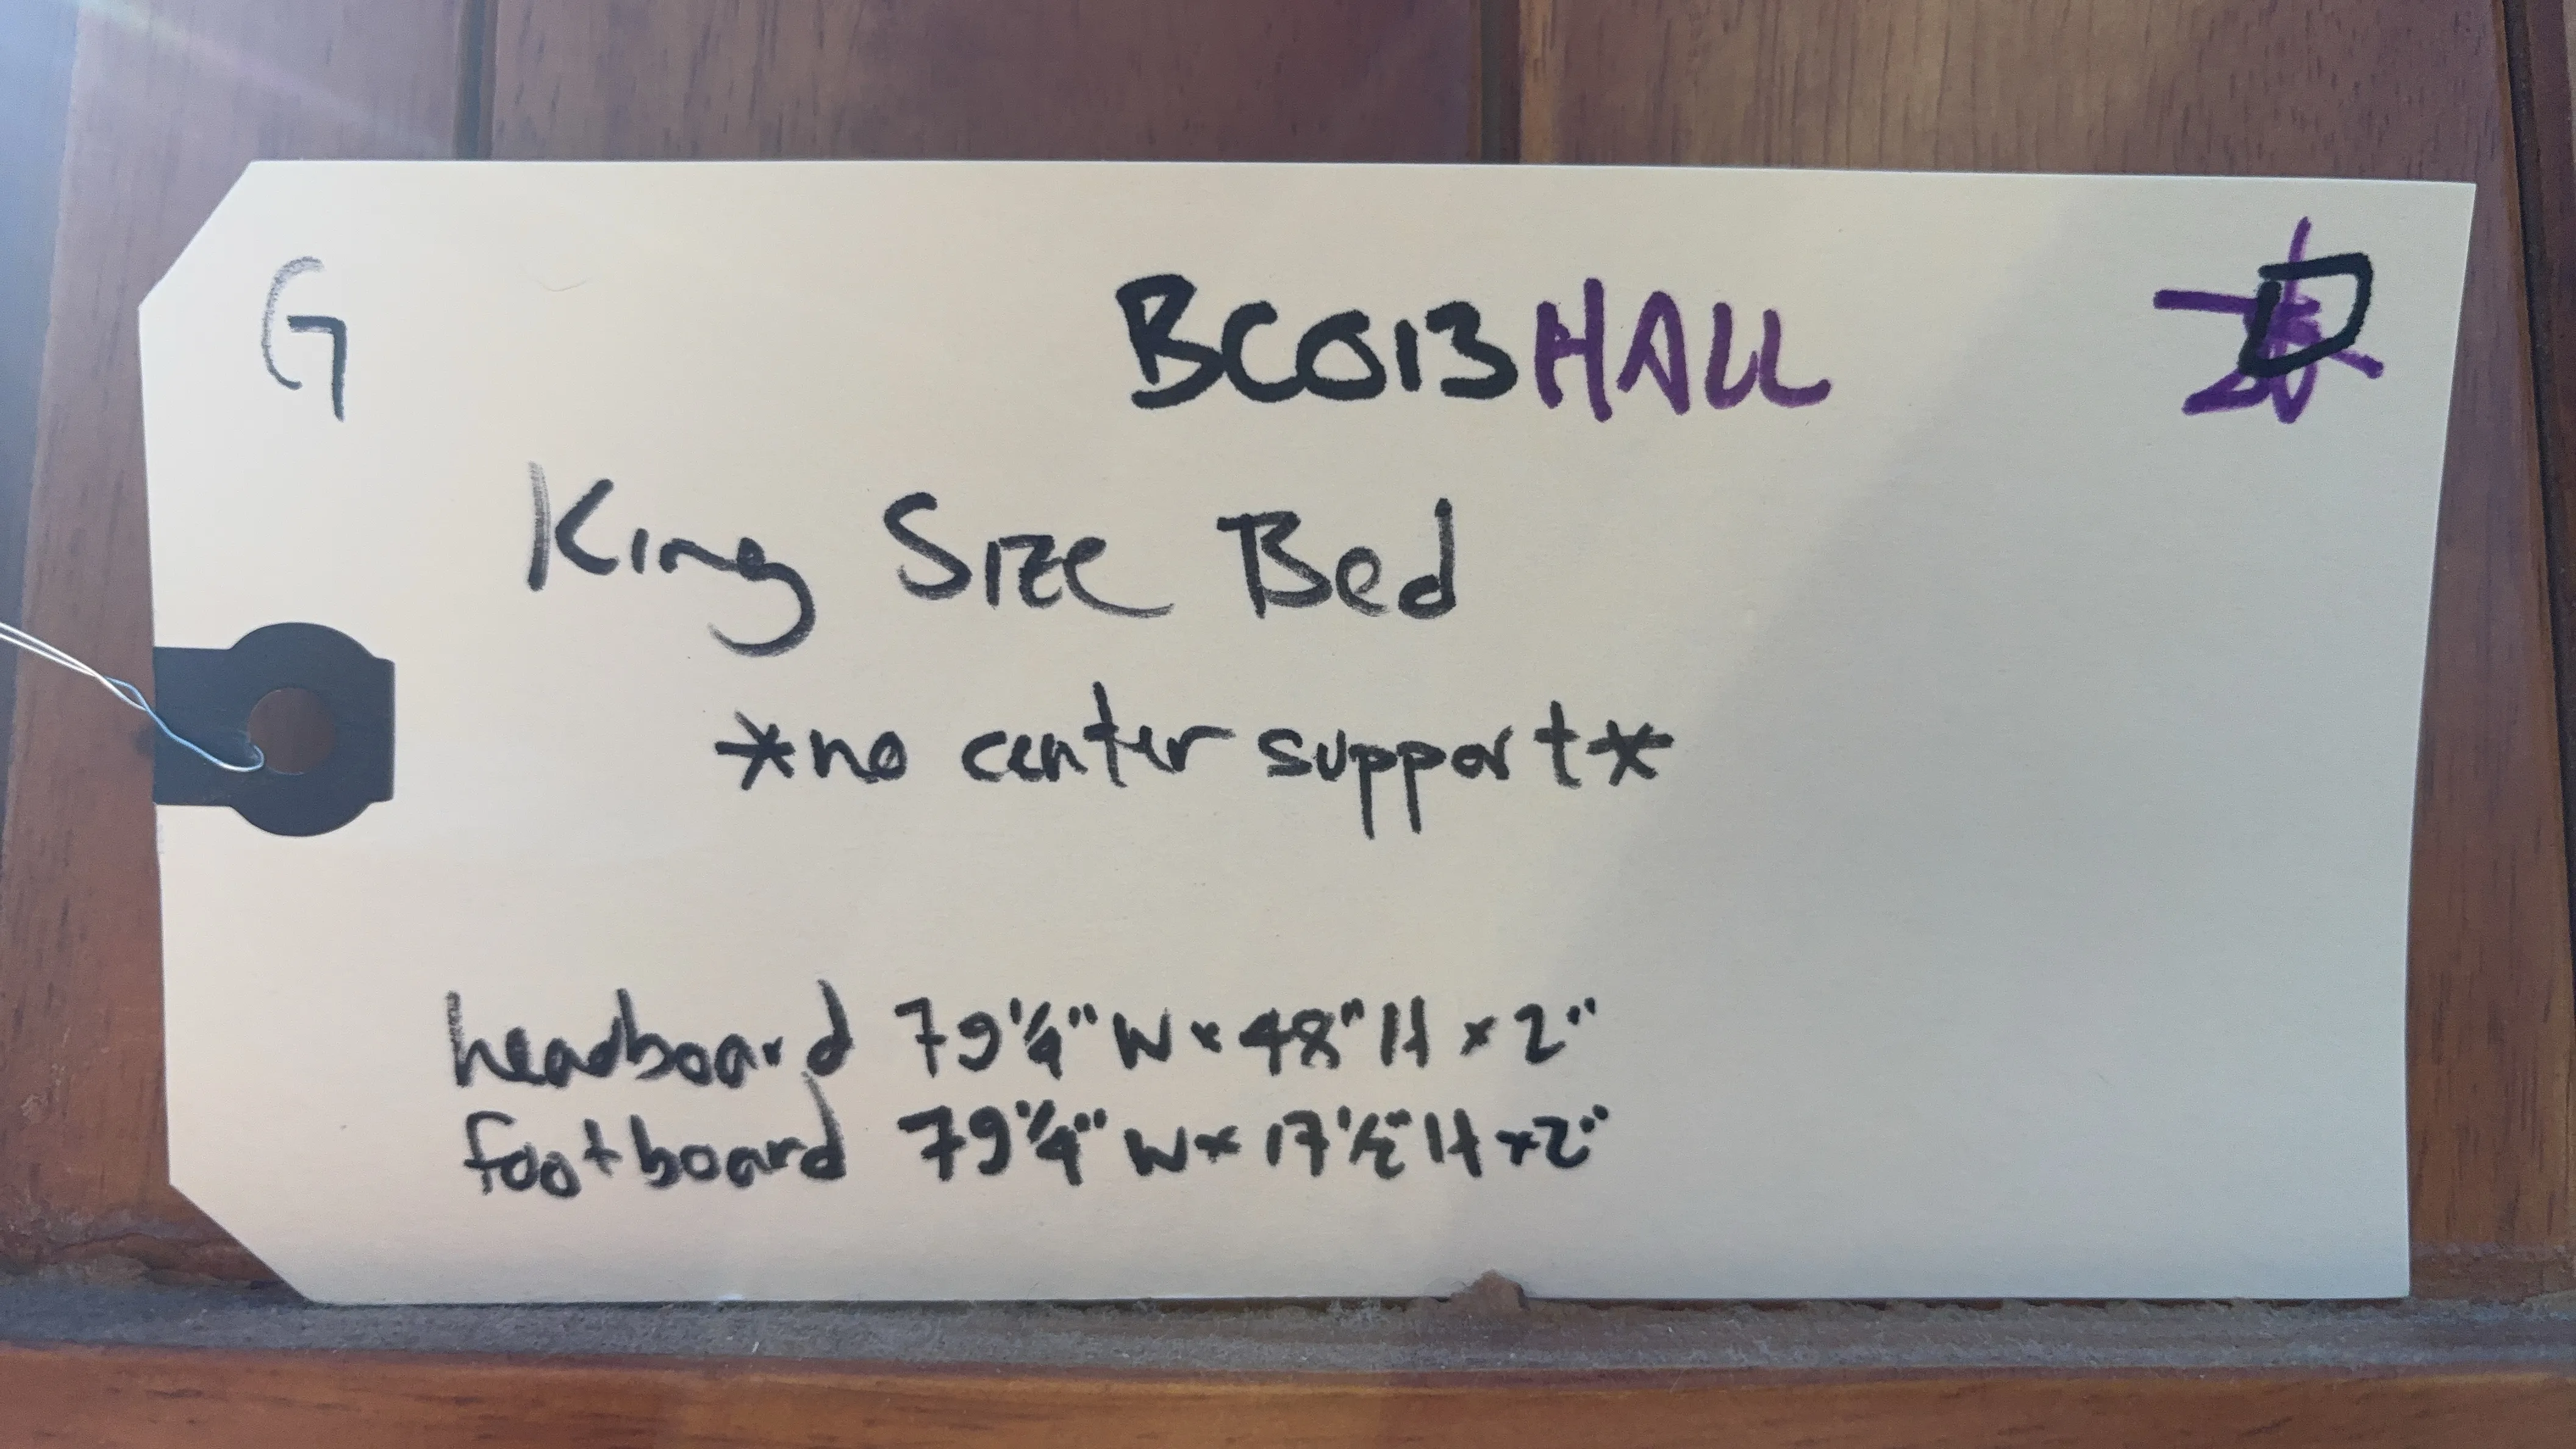 G BC013HALL D
King Size Bed
*no center support*
headboard 79 1/4" W x 48" H x 2"
footboard 79 1/4" W x 17 1/2" H x 2"